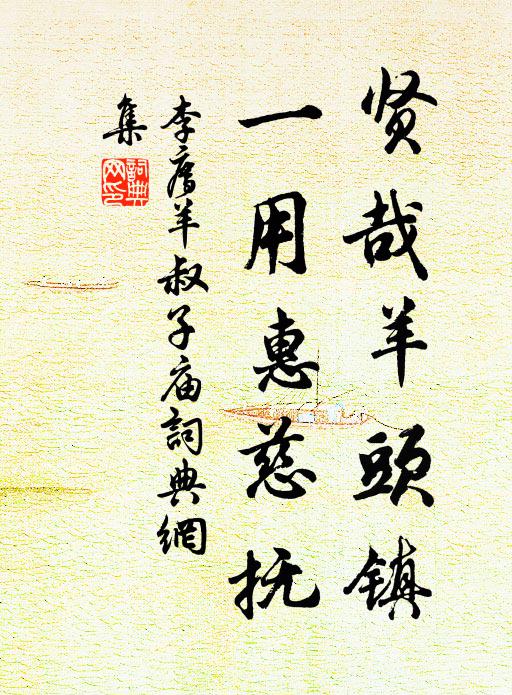 贤哉羊頭镇
一用惠慈抚
李廌羊叔子庙詞典網
集
詞典网印